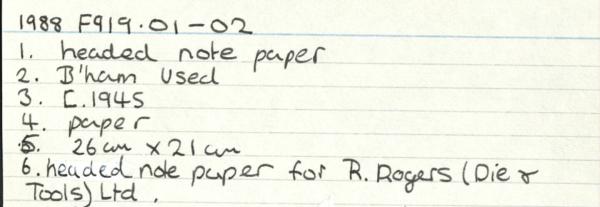 1988 F919.01-02
1. headed note paper
2. B'ham Used
3. C.1945
4. paper
5. 26cm x 21cm
6. headed note paper for R. Rogers (Die &
Tools) Ltd.